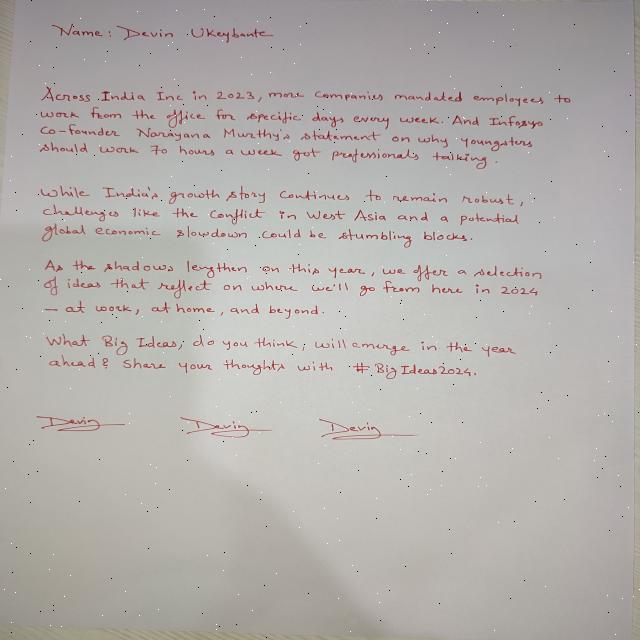 Name: Devin Ukeybante
Across India Inc in 2023, more companies mandated employees to
work from the office for specific days every week. And Infosys
Co-founder Narayana Murthy's statement on why youngsters
should work 70 hours a week got professionals talking.
While India's growth story continues to remain robust,
challenges like the conflict in West Asia and a potential
global economic slowdown could be stumbling blocks.
As the shadows lengthen on this year, we offer a selection
of ideas that reflect on where we'll go from here in 2024
— at work, at home, and beyond.
What Big Ideas, do you think, will emerge in the year
ahead? Share your thoughts with #BigIdeas2024.
Devin Devin Devin